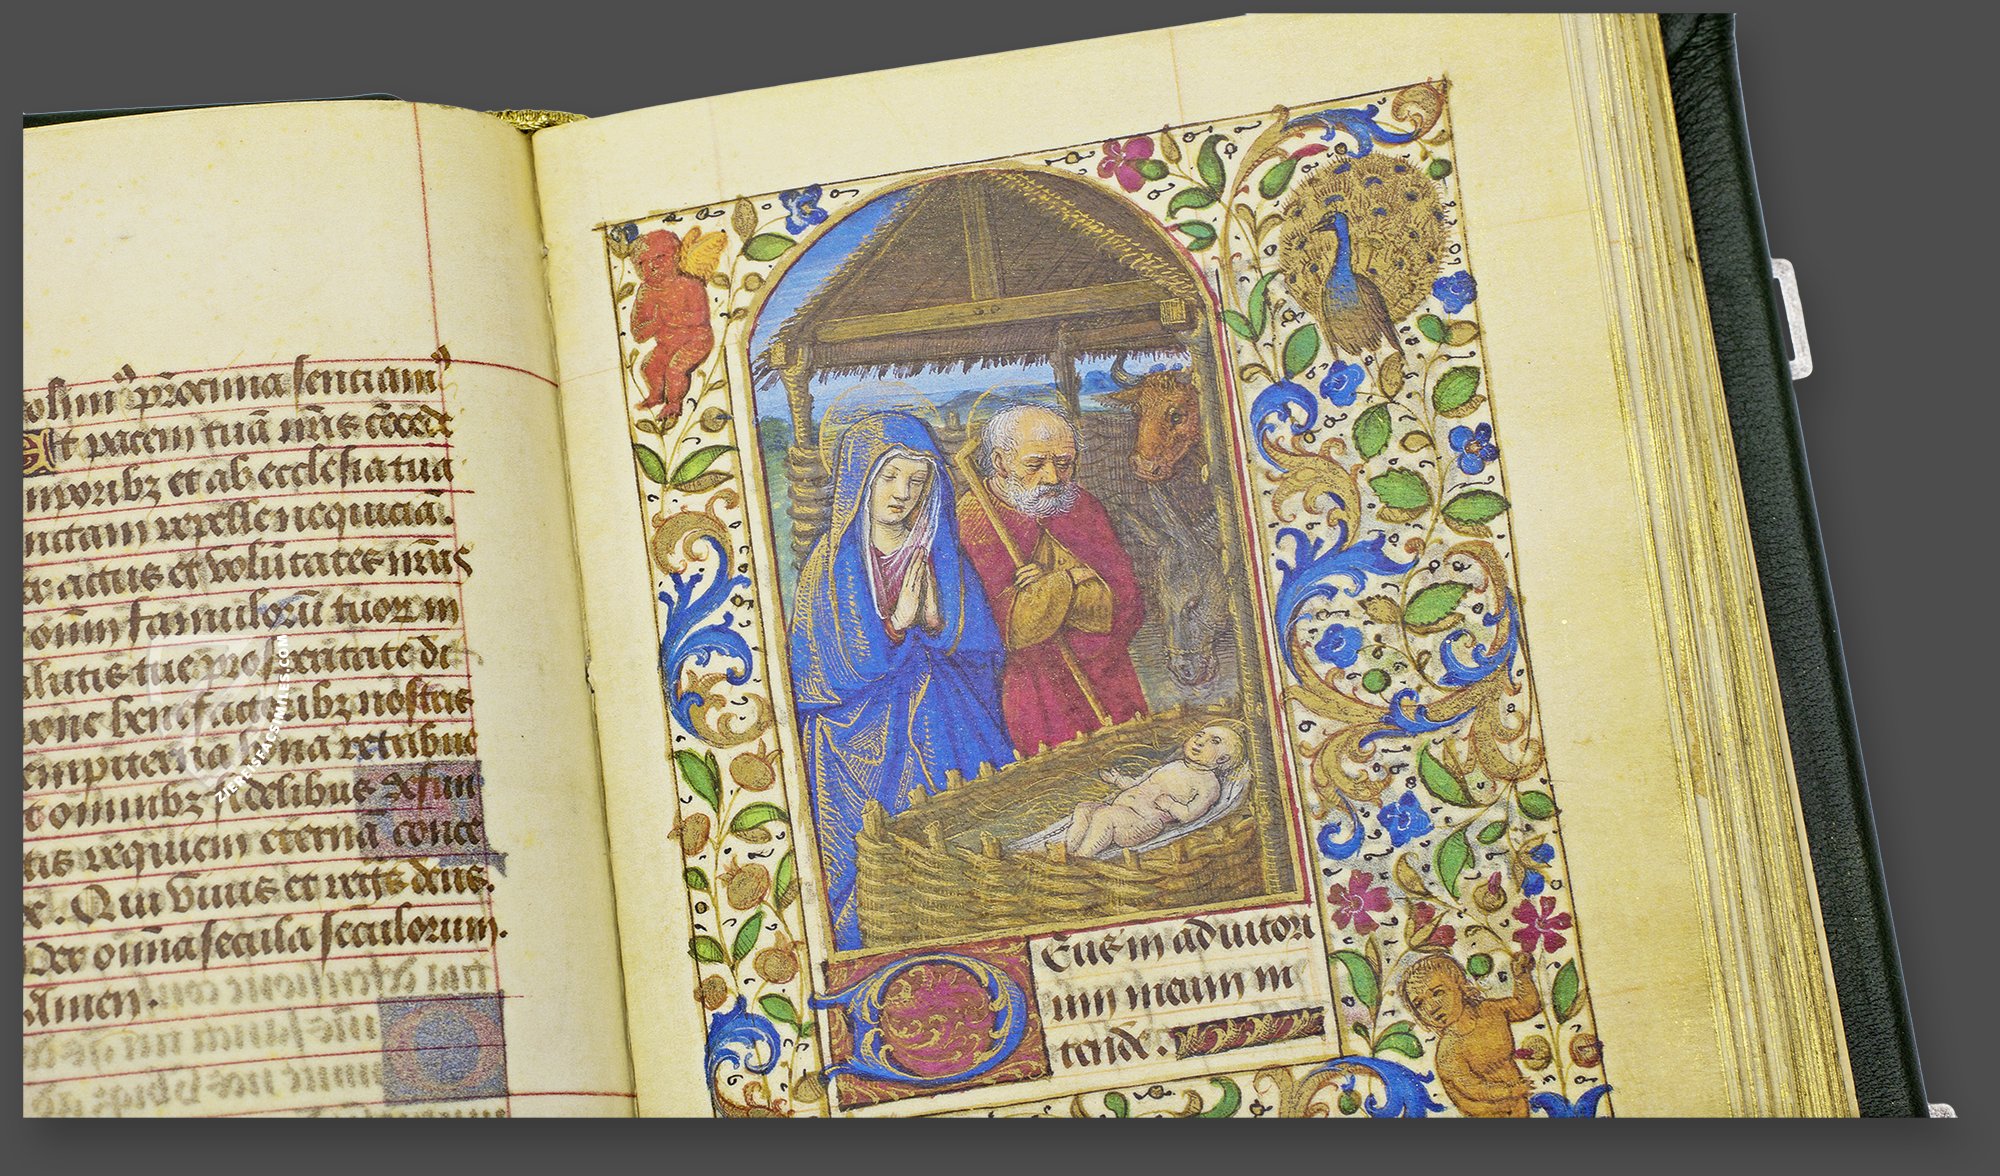 olim proxima sentiam
Et pacem tuā nr̄is cōcede
mporibꝫ et ab ecclesia tua
nctam repelle nequiciā.
actus et volūtates nr̄as
oīm famulorū tuoꝝ in
alutis tue prosperitate di
one benefactoribꝫ nostris
empiterna bona retribue
t omnibꝫ fidelibus defun
tis requiem eternā conce
. Qui vivis et regn̄s deus.
Per om̄ia secula seculorum.
Amen.
Deus in adiutori
um meum in
tende.
ZIEREISFACSIMILES.COM